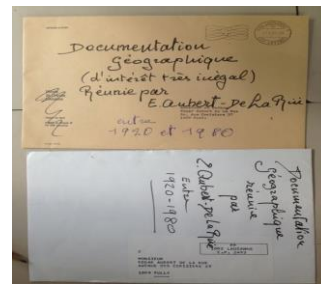 Documentation
Géographique
(d'intérêt très inégal)
Réunie par
E. Aubert-De La Rüe
entre
1920 et 1980
Documentation
Géographique
réunie
par
E. Aubert-De La Rüe
Entre
1920-1980
MONSIEUR
EDGAR AUBERT DE LA RUE
1009 PULLY